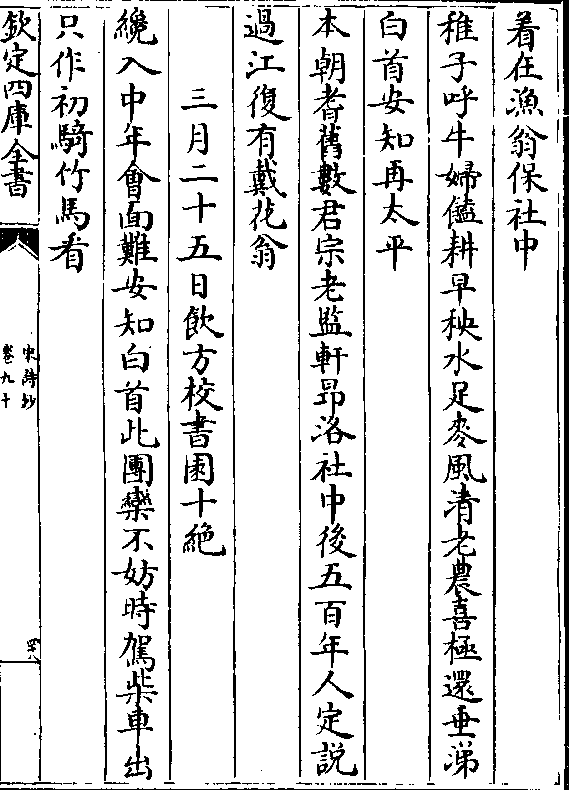 着在漁翁保社中
稚子呼牛婦儘耕早秧水足麥風清老農喜極還垂涕
白首安知再太平
本朝耆舊數君宗老監軒昻洛社中後五百年人定説
過江復有戴花翁
三月二十五日飲方校書園十絶
纔入中年會面難安知白首此團欒不妨時駕柴車出
只作初騎竹馬看
欽定四庫全書
宋詩鈔
卷九十